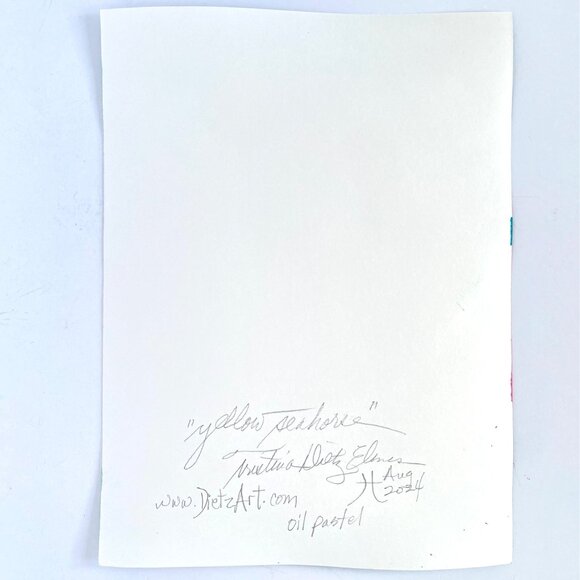 "yellow seahorse"
Dietz
Aug
2024
www.DietzArt.com
oil pastel